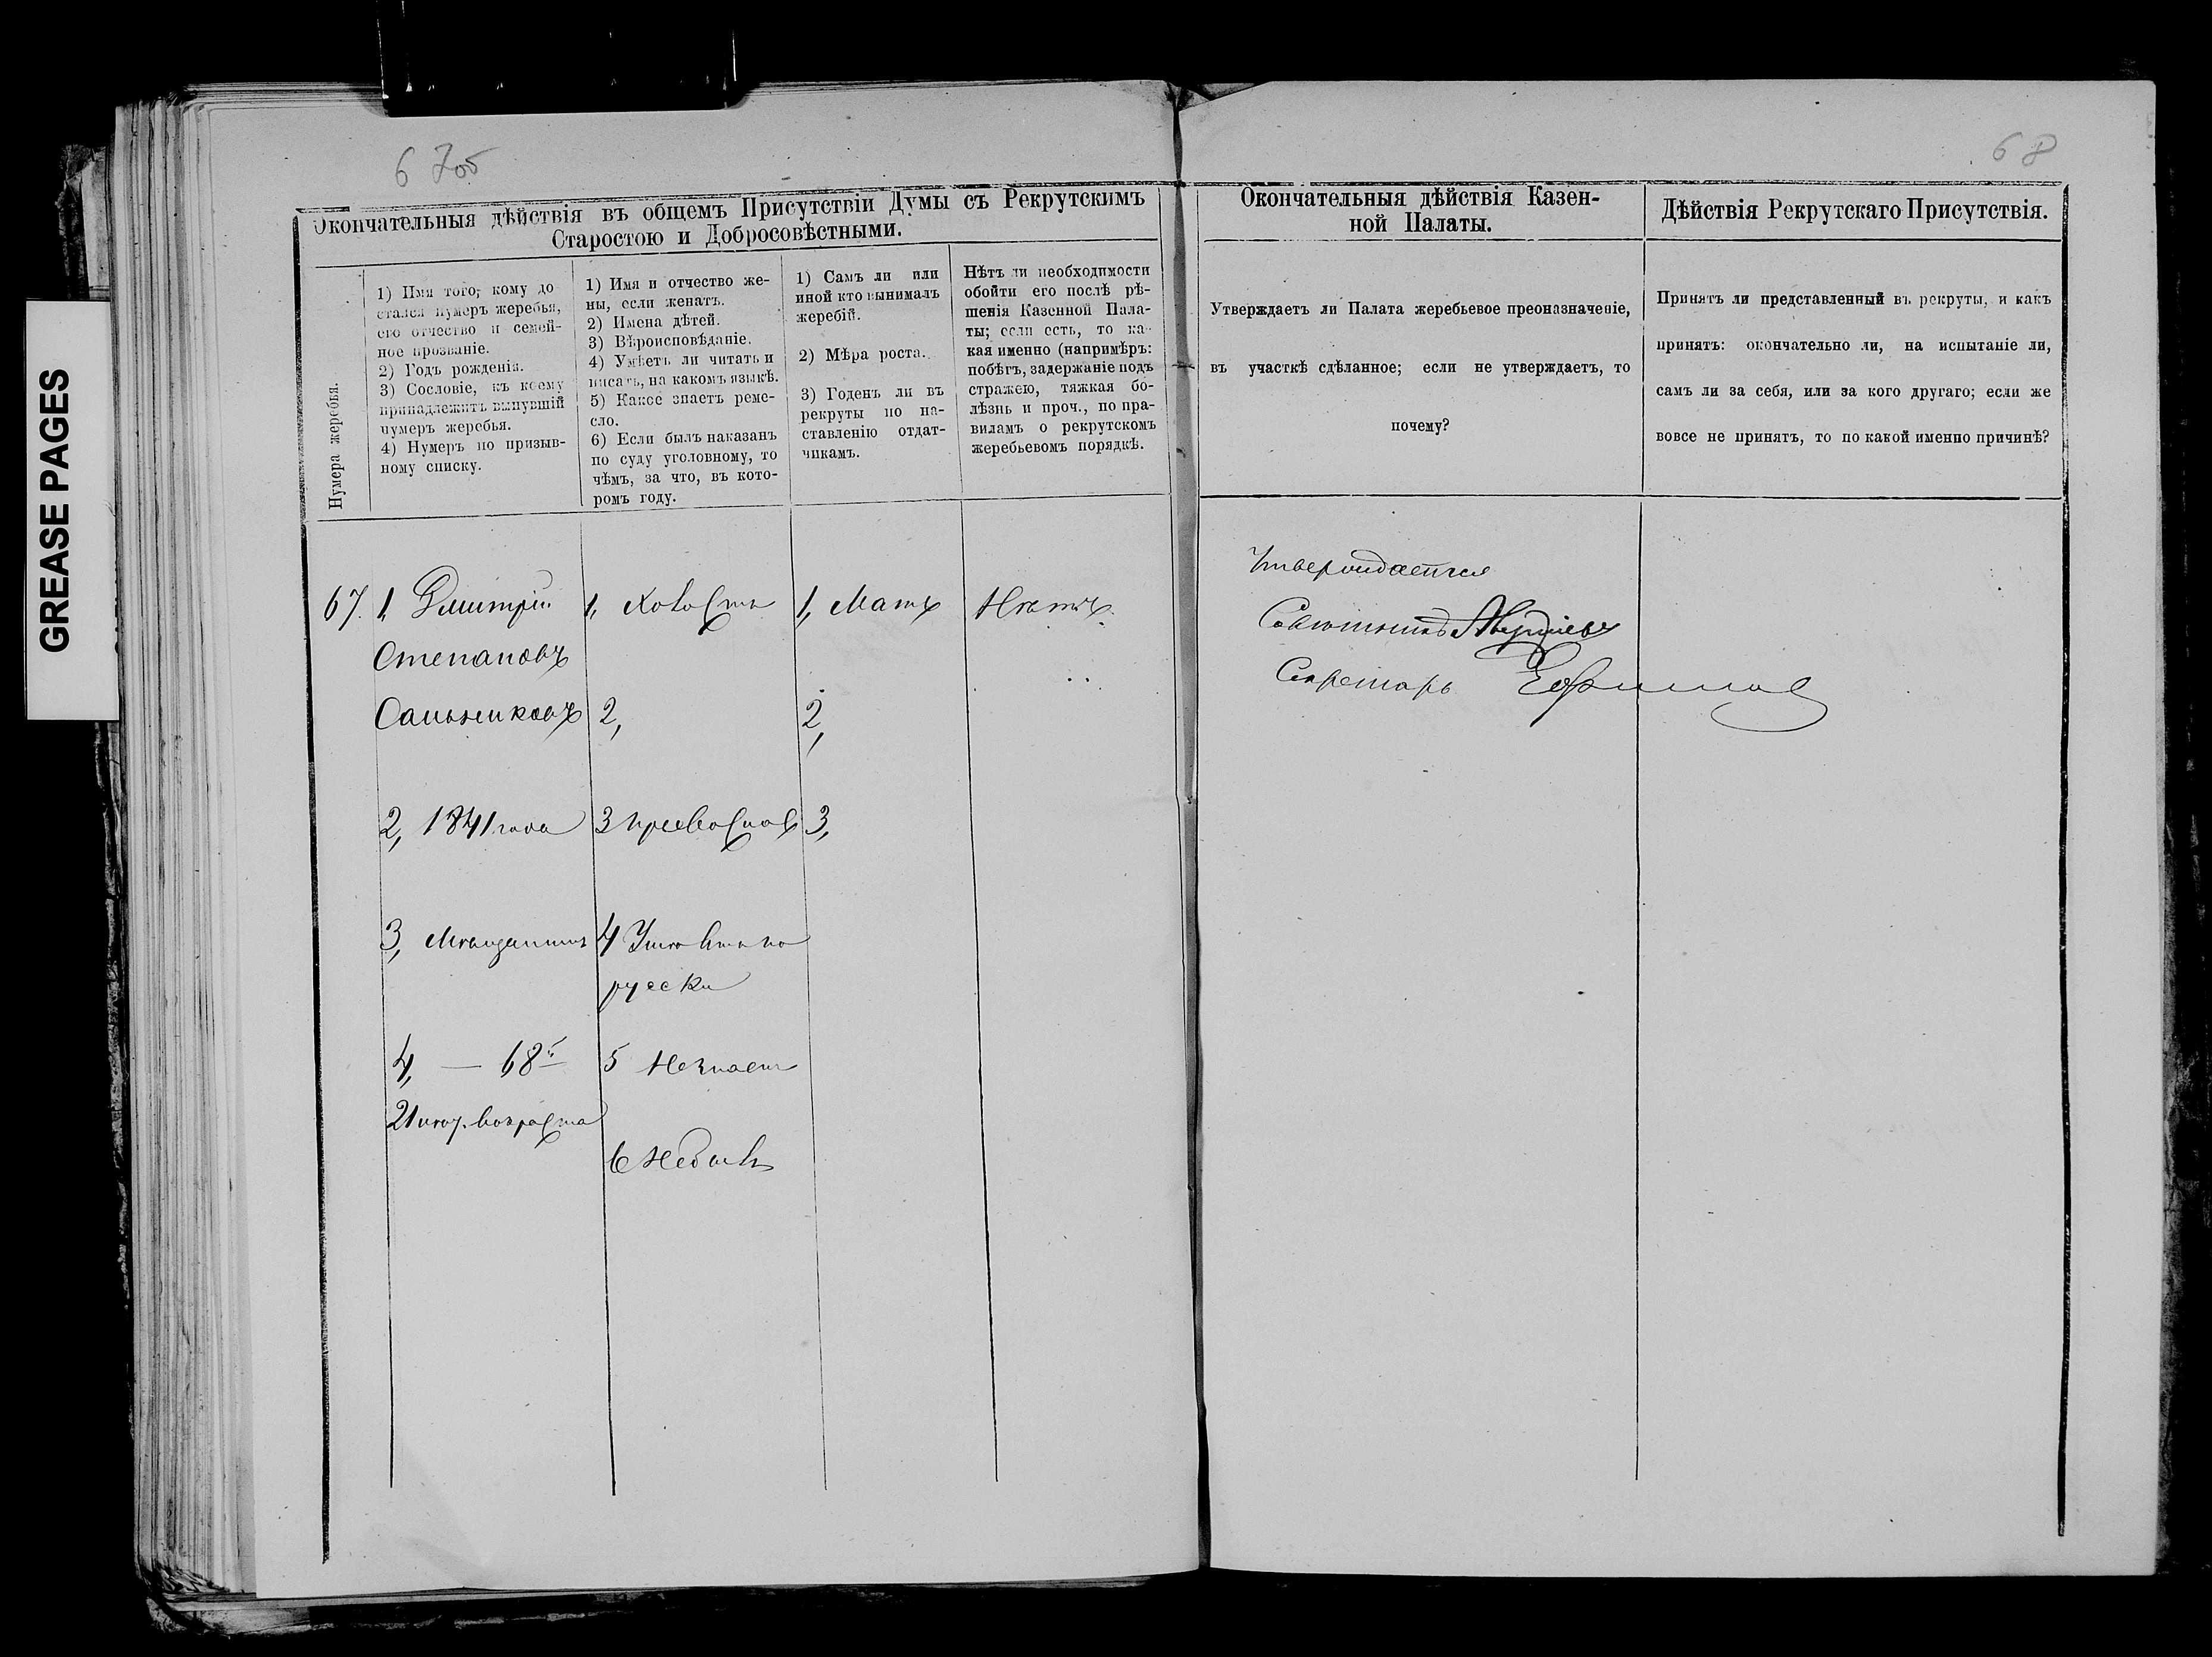 GREASE PAGES
67об
68
Окончательныя дѣйствія въ общемъ Присутствіи Думы съ Рекрутскимъ
Старостою и Добросовѣстными.
Нумера жеребья.
1) Имя того, кому до
стался нумеръ жеребья,
его отчество и семей-
ное прозваніе.
2) Годъ рожденія.
3) Сословіе, къ коему
принадлежитъ вынувшій
нумеръ жеребья.
4) Нумеръ по призыв-
ному списку.
1) Имя и отчество же-
ны, если женатъ.
2) Имена дѣтей.
3) Вѣроисповѣданіе.
4) Умѣетъ ли читать и
писать, на какомъ языкѣ.
5) Какое знаетъ реме-
сло.
6) Если былъ наказанъ
по суду уголовному, то
чѣмъ, за что, въ кото-
ромъ году.
1) Самъ ли или
иной кто вынималъ
жеребій.
2) Мѣра роста.
3) Годенъ ли въ
рекруты по на-
ставленію отдат-
чикамъ.
Нѣтъ ли необходимости
обойти его послѣ рѣ-
шенія Казенной Пала-
ты; если есть, то ка-
кая именно (напримѣръ:
побѣгъ, задержаніе подъ
стражею, тяжкая бо-
лѣзнь и проч., по пра-
виламъ о рекрутскомъ
жеребьевомъ порядкѣ.
Окончательныя дѣйствія Казен-
ной Палаты.
Утверждаетъ ли Палата жеребьевое преоназначеніе,
въ участкѣ сдѣланное; если не утверждаетъ, то
почему?
Дѣйствія Рекрутскаго Присутствія.
Принятъ ли представленный въ рекруты, и какъ
принятъ: окончательно ли, на испытаніе ли,
самъ ли за себя, или за кого другаго; если же
вовсе не принятъ, то по какой именно причинѣ?
67. 1, Дмитрій
Степановъ
Сальниковъ
2, 1841 года
3, Мѣщанинъ
4, — 68й
21 лѣт. возраста
1, Холостъ
2,
3 православ
4 Умѣетъ по
русски
5 Незнаетъ
6 Небылъ
1, Мать
2,
3,
Нѣтъ.
Утверждается
Совѣтникъ
Секретарь Ефимов